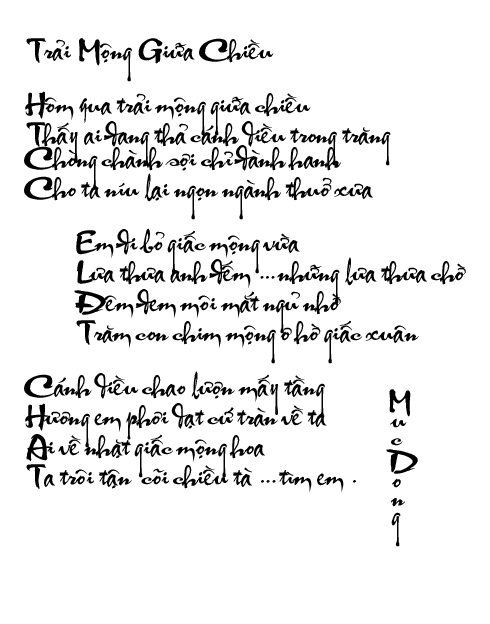 Trải Mộng Giữa Chiều
Hôm qua trải mộng giữa chiều
Thấy ai đang thả cánh diều trong trăng
Chòng chành sợi chỉ đành hanh
Cho ta níu lại ngọn ngành thuở xưa
Em đi bỏ giấc mộng vừa
Lưa thưa anh đếm ...những lưa thưa chờ
Đêm đem môi mắt ngủ nhờ
Trăm con chim mộng ô hờ giấc xuân
Cánh diều chao lượn mấy tầng
Hương em phôi đạt cứ tràn về ta
Ai về nhặt giấc mộng hoa
Ta trôi tận cõi chiều tà ...tìm em .
Muc Dong